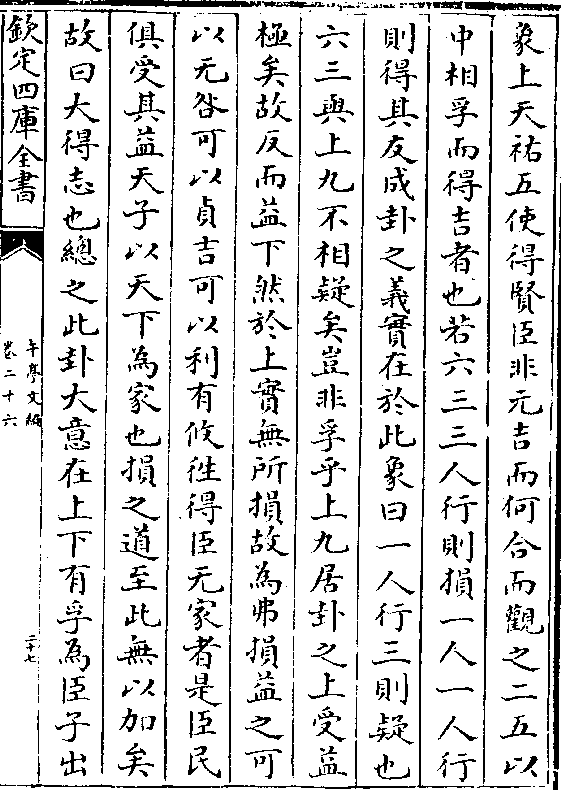 象上天祐五使得賢臣非元吉而何合而觀之二五以
中相孚而得吉者也若六三三人行則損一人一人行
則得其友成卦之義實在於此象曰一人行三則疑也
六三與上九不相疑矣豈非孚乎上九居卦之上受益
極矣故反而益下然於上實無所損故為弗損益之可
以无咎可以貞吉可以利有攸徃得臣无家者是臣民
俱受其益天子以天下為家也損之道至此無以加矣
故曰大得志也總之此卦大意在上下有孚為臣子出
欽定四庫全書
午亭文編
卷二十六
二十七